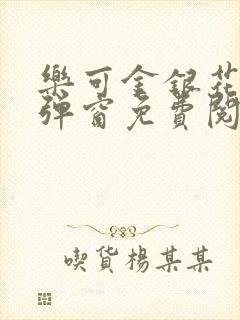 樂可金銀花
彈窗免費閱
喫貨楊某某